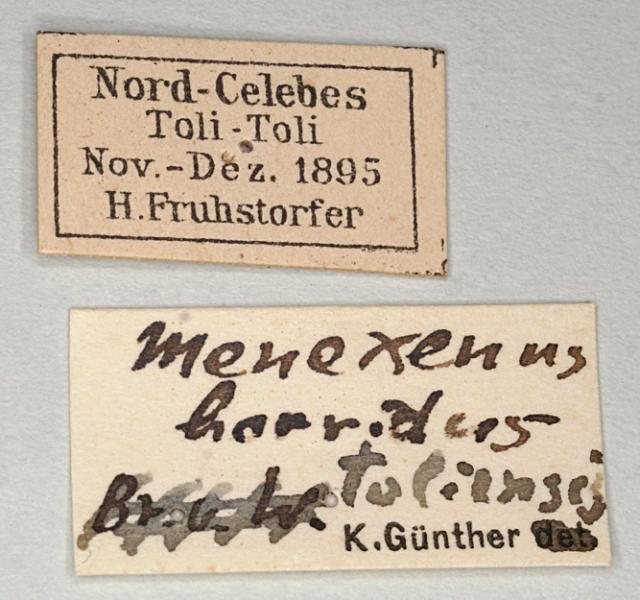 Nord-Celebes
Toli-Toli
Nov.-Dez. 1895
H. Fruhstorfer
Menexenus
horridus
Br. v. W. toliensis
K. Günther det.